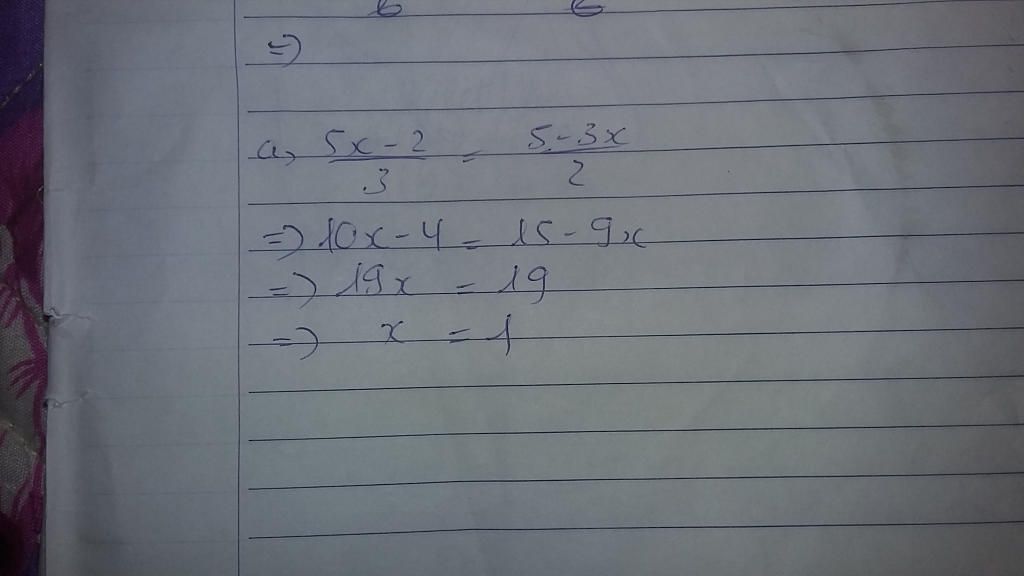 6 6
=>
a, 5x - 2 / 3 = 5 - 3x / 2
=> 10x - 4 = 15 - 9x
=> 19x = 19
=> x = 1